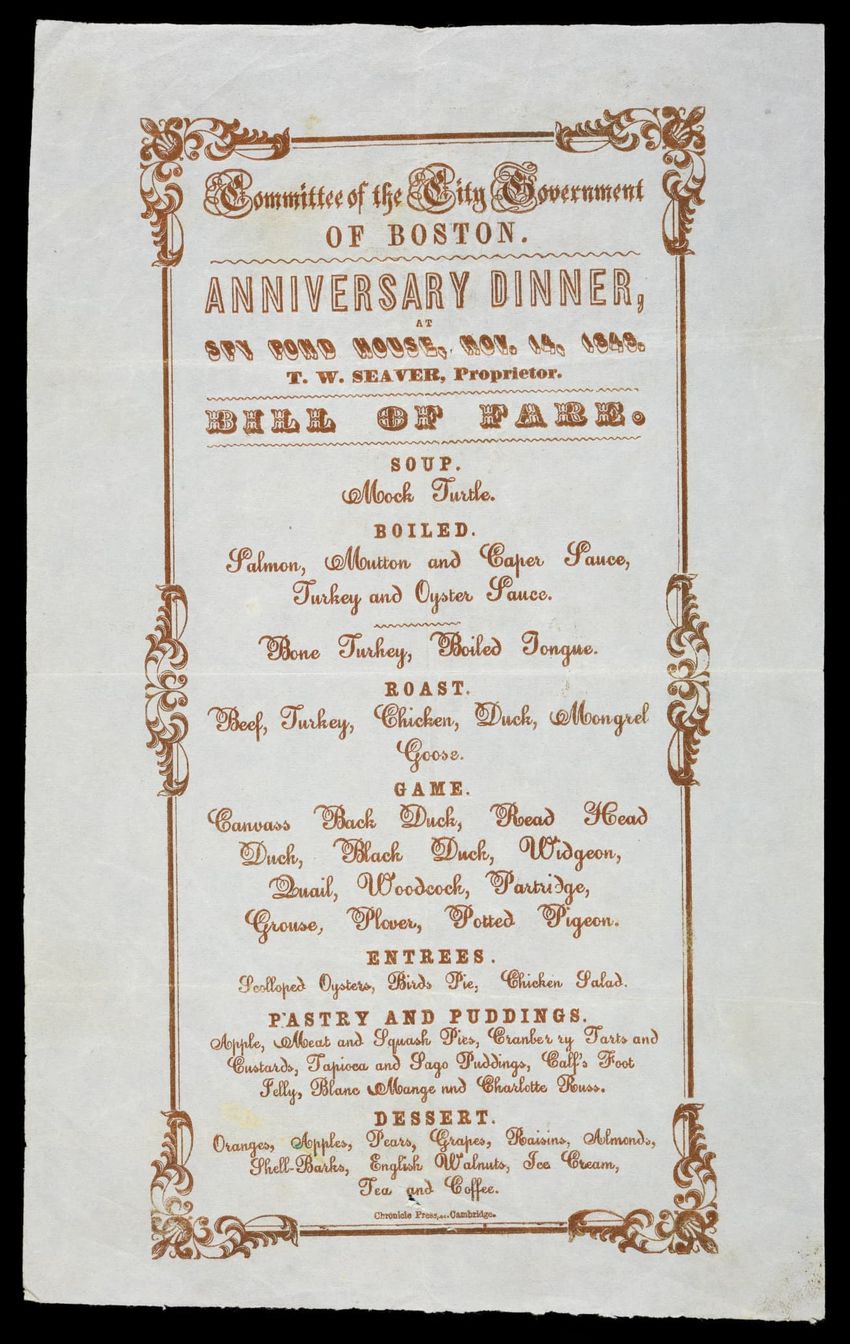 Committee of the City Government
OF BOSTON.
ANNIVERSARY DINNER,
AT
SPY POND HOUSE, NOV. 14, 1848.
T. W. SEAVER, Proprietor.
BILL OF FARE.
SOUP.
Mock Turtle.
BOILED.
Salmon, Mutton and Caper Sauce,
Turkey and Oyster Sauce.
Bone Turkey, Boiled Tongue.
ROAST.
Beef, Turkey, Chicken, Duck, Mongrel
Goose.
GAME.
Canvass Back Duck, Read Head
Duck, Black Duck, Widgeon,
Quail, Woodcock, Partridge,
Grouse, Plover, Potted Pigeon.
ENTREES.
Scolloped Oysters, Birds Pie, Chicken Salad.
PASTRY AND PUDDINGS.
Apple, Meat and Squash Pies, Cranberry Tarts and
Custards, Tapioca and Sago Puddings, Calf's Foot
Jelly, Blanc Mange nnd Charlotte Russ.
DESSERT.
Oranges, Apples, Pears, Grapes, Raisins, Almonds,
Shell-Barks, English Walnuts, Ice Cream,
Tea and Coffee.
Chronicle Press,...Cambridge.